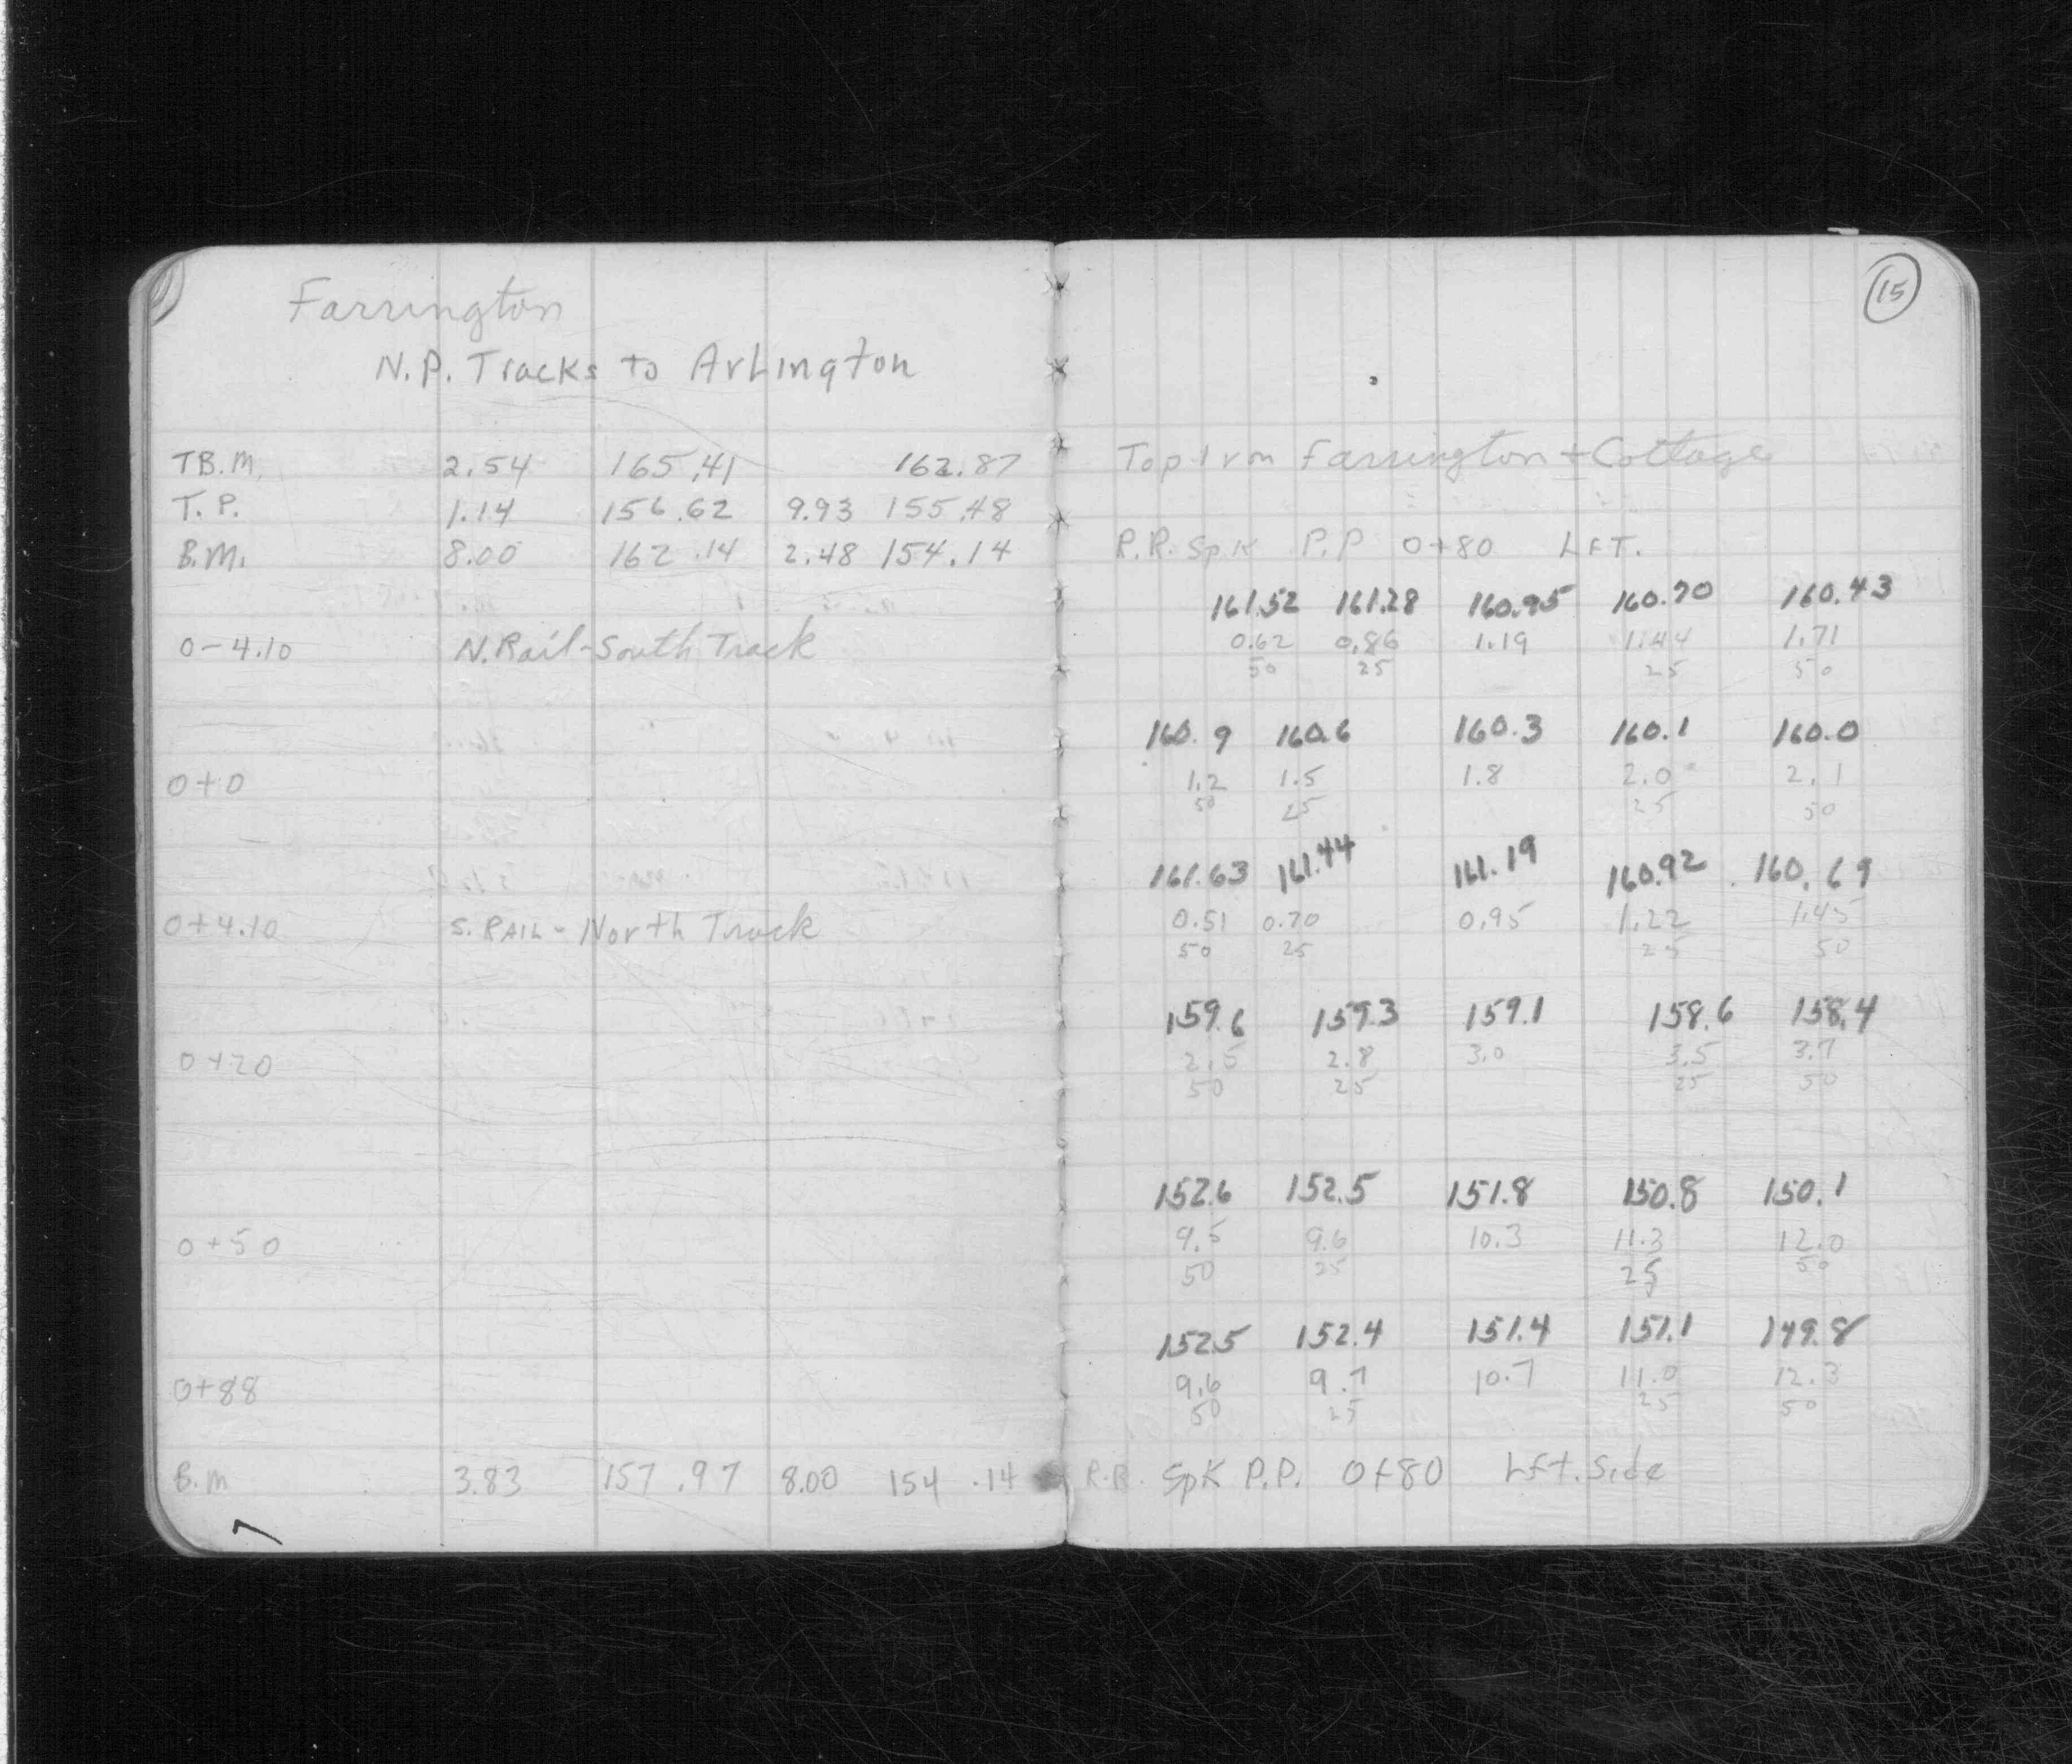 Farrington
N.P. Tracks to Arlington
T.B.M. 2.54 165.41 162.87
T.P. 1.14 156.62 9.93 155.48
B.M. 8.00 162.14 2.48 154.14
0-4.10 N. Rail - South Track
0+0
0+4.10 S. RAIL - North Track
0+20
0+50
0+88
B.M 3.83 157.97 8.00 154.14
15
Top Iron Farrington + Cottage
R.R. Spk P.P 0+80 LFT.
161.52 161.28 160.95 160.70 160.43
0.62 0.86 1.19 1.44 1.71
50 25 25 50
160.9 160.6 160.3 160.1 160.0
1.2 1.5 1.8 2.0 2.1
50 25 25 50
161.63 161.44 161.19 160.92 160.69
0.51 0.70 0.95 1.22 1.45
50 25 25 50
159.6 159.3 159.1 158.6 158.4
2.5 2.8 3.0 3.5 3.7
50 25 25 50
152.6 152.5 151.8 150.8 150.1
9.5 9.6 10.3 11.3 12.0
50 25 25 50
152.5 152.4 151.4 151.1 149.8
9.6 9.7 10.7 11.0 12.3
50 25 25 50
R.R. Spk P.P. 0+80 Lft. Side